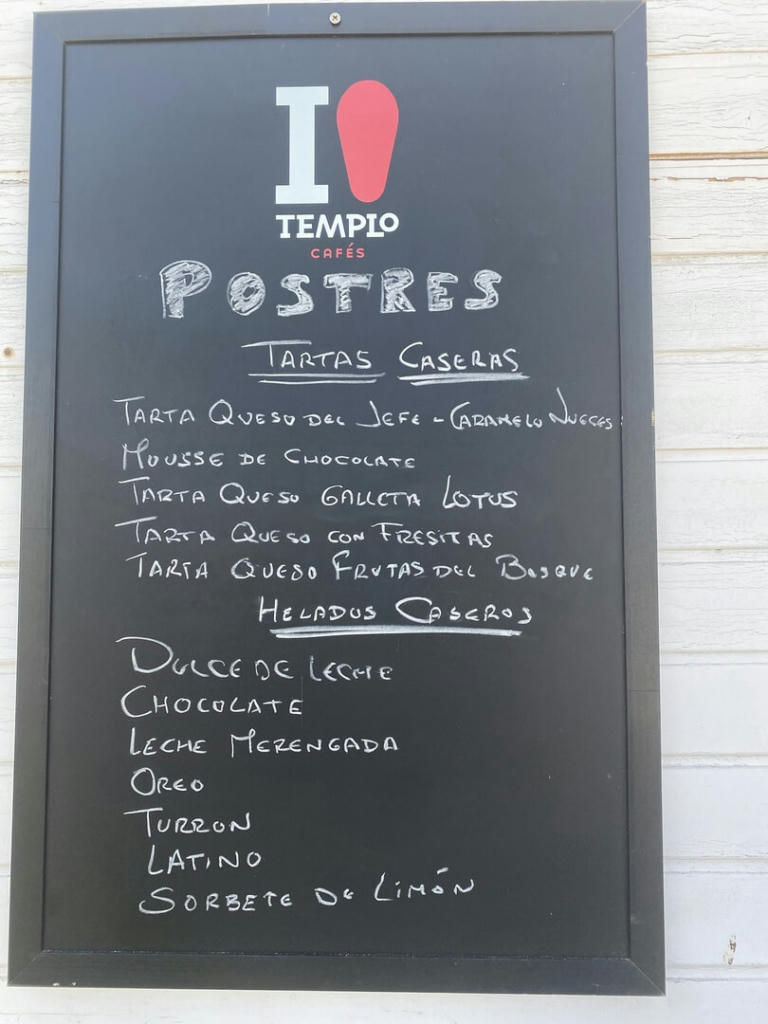 I
TEMPLO
CAFÉS
POSTRES
TARTAS CASERAS
TARTA QUESO DEL JEFE - CARAMELO NUECES
MOUSSE DE CHOCOLATE
TARTA QUESO GALLETA LOTUS
TARTA QUESO CON FRESITAS
TARTA QUESO FRUTAS DEL BOSQUE
HELADOS CASEROS
DULCE DE LECHE
CHOCOLATE
LECHE MERENGADA
OREO
TURRON
LATINO
SORBETE DE LIMÓN